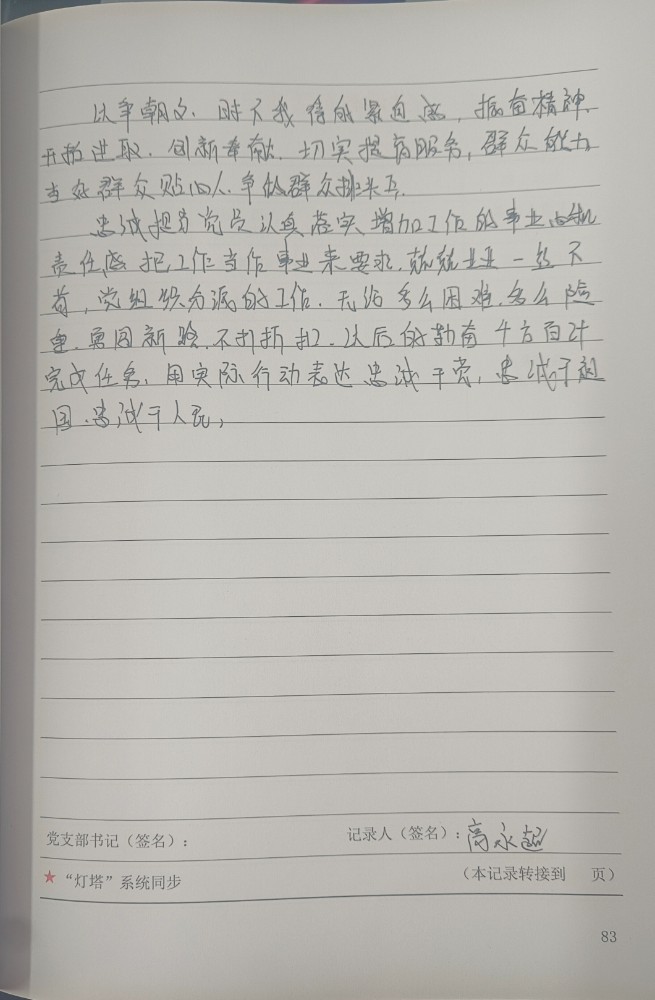 以争朝夕、时不我待的紧迫感,振奋精神、
开拓进取、创新奉献、切实提高服务,群众能力
当好群众贴心人、争做群众排头兵、
忠诚担当党员认真落实、增加工作的事业心和
责任感把工作当作事业来要求、兢兢业业一丝不
苟,党组织分派的工作、无论多么困难、多么险
重、勇 、不打折扣、以后的勤奋千方百计
完成任务、用实际行动表达忠诚于党,忠诚于祖
国、忠诚于人民,
党支部书记(签名): 记录人(签名):高永超
★“灯塔”系统同步 (本记录转接到 页)
83